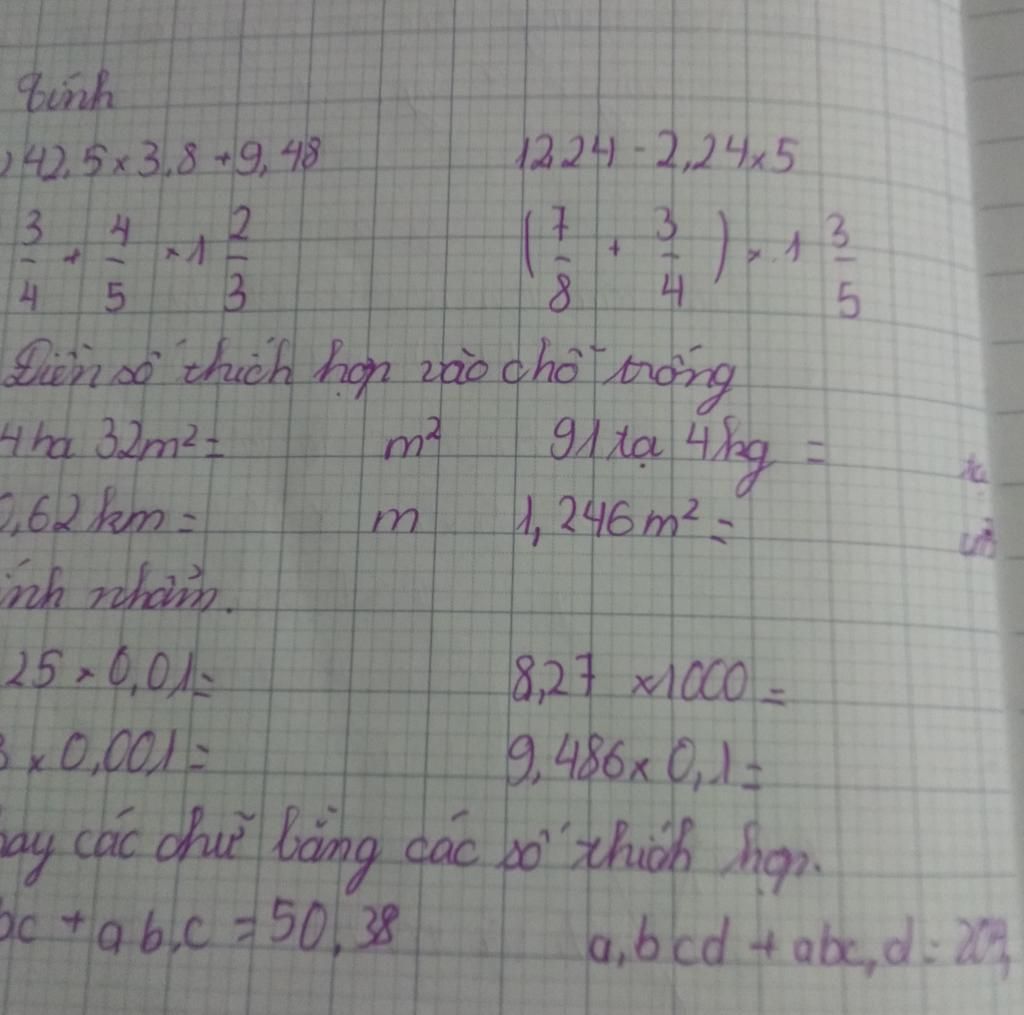 Tính
) 42,5 x 3,8 + 9,48 12,24 - 2,24 x 5
3/4 + 4/5 x 1 2/3 (7/8 + 3/4) x 1 3/5
Điền số thích hợp vào chỗ trống
4ha 32m² = m² 91 tạ 4kg =
,62km = m 1,246m² =
ính nhẩm.
25 x 0,01 = 8,27 x 1000 =
x 0,001 = 9,486 x 0,1 =
hay các chữ bằng các số thích hợp.
bc + ab,c = 50,38 a,bcd + abc,d =